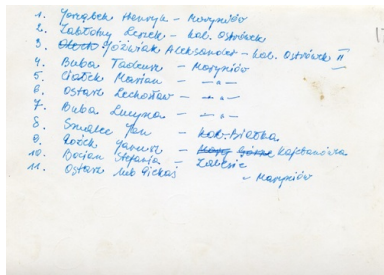 1. Jorąbek Henryk – Maryniów
2. Zabłotny Leszek – kol. Ostrówek
3. Jóźwiak Aleksander – kol. Ostrówek II
4. Buba Tadeusz – Maryniów
5. Ciołek Marian – „ –
6. Ostasz Lechosław – „ –
7. Buba Lucyna – „ –
8. Smalec Jan – kol. Białka
9. Janusz – Kajetanówka
10. Bocian Stefania – Zalesie
11. Ostasz lub Piekaś – Maryniów
17